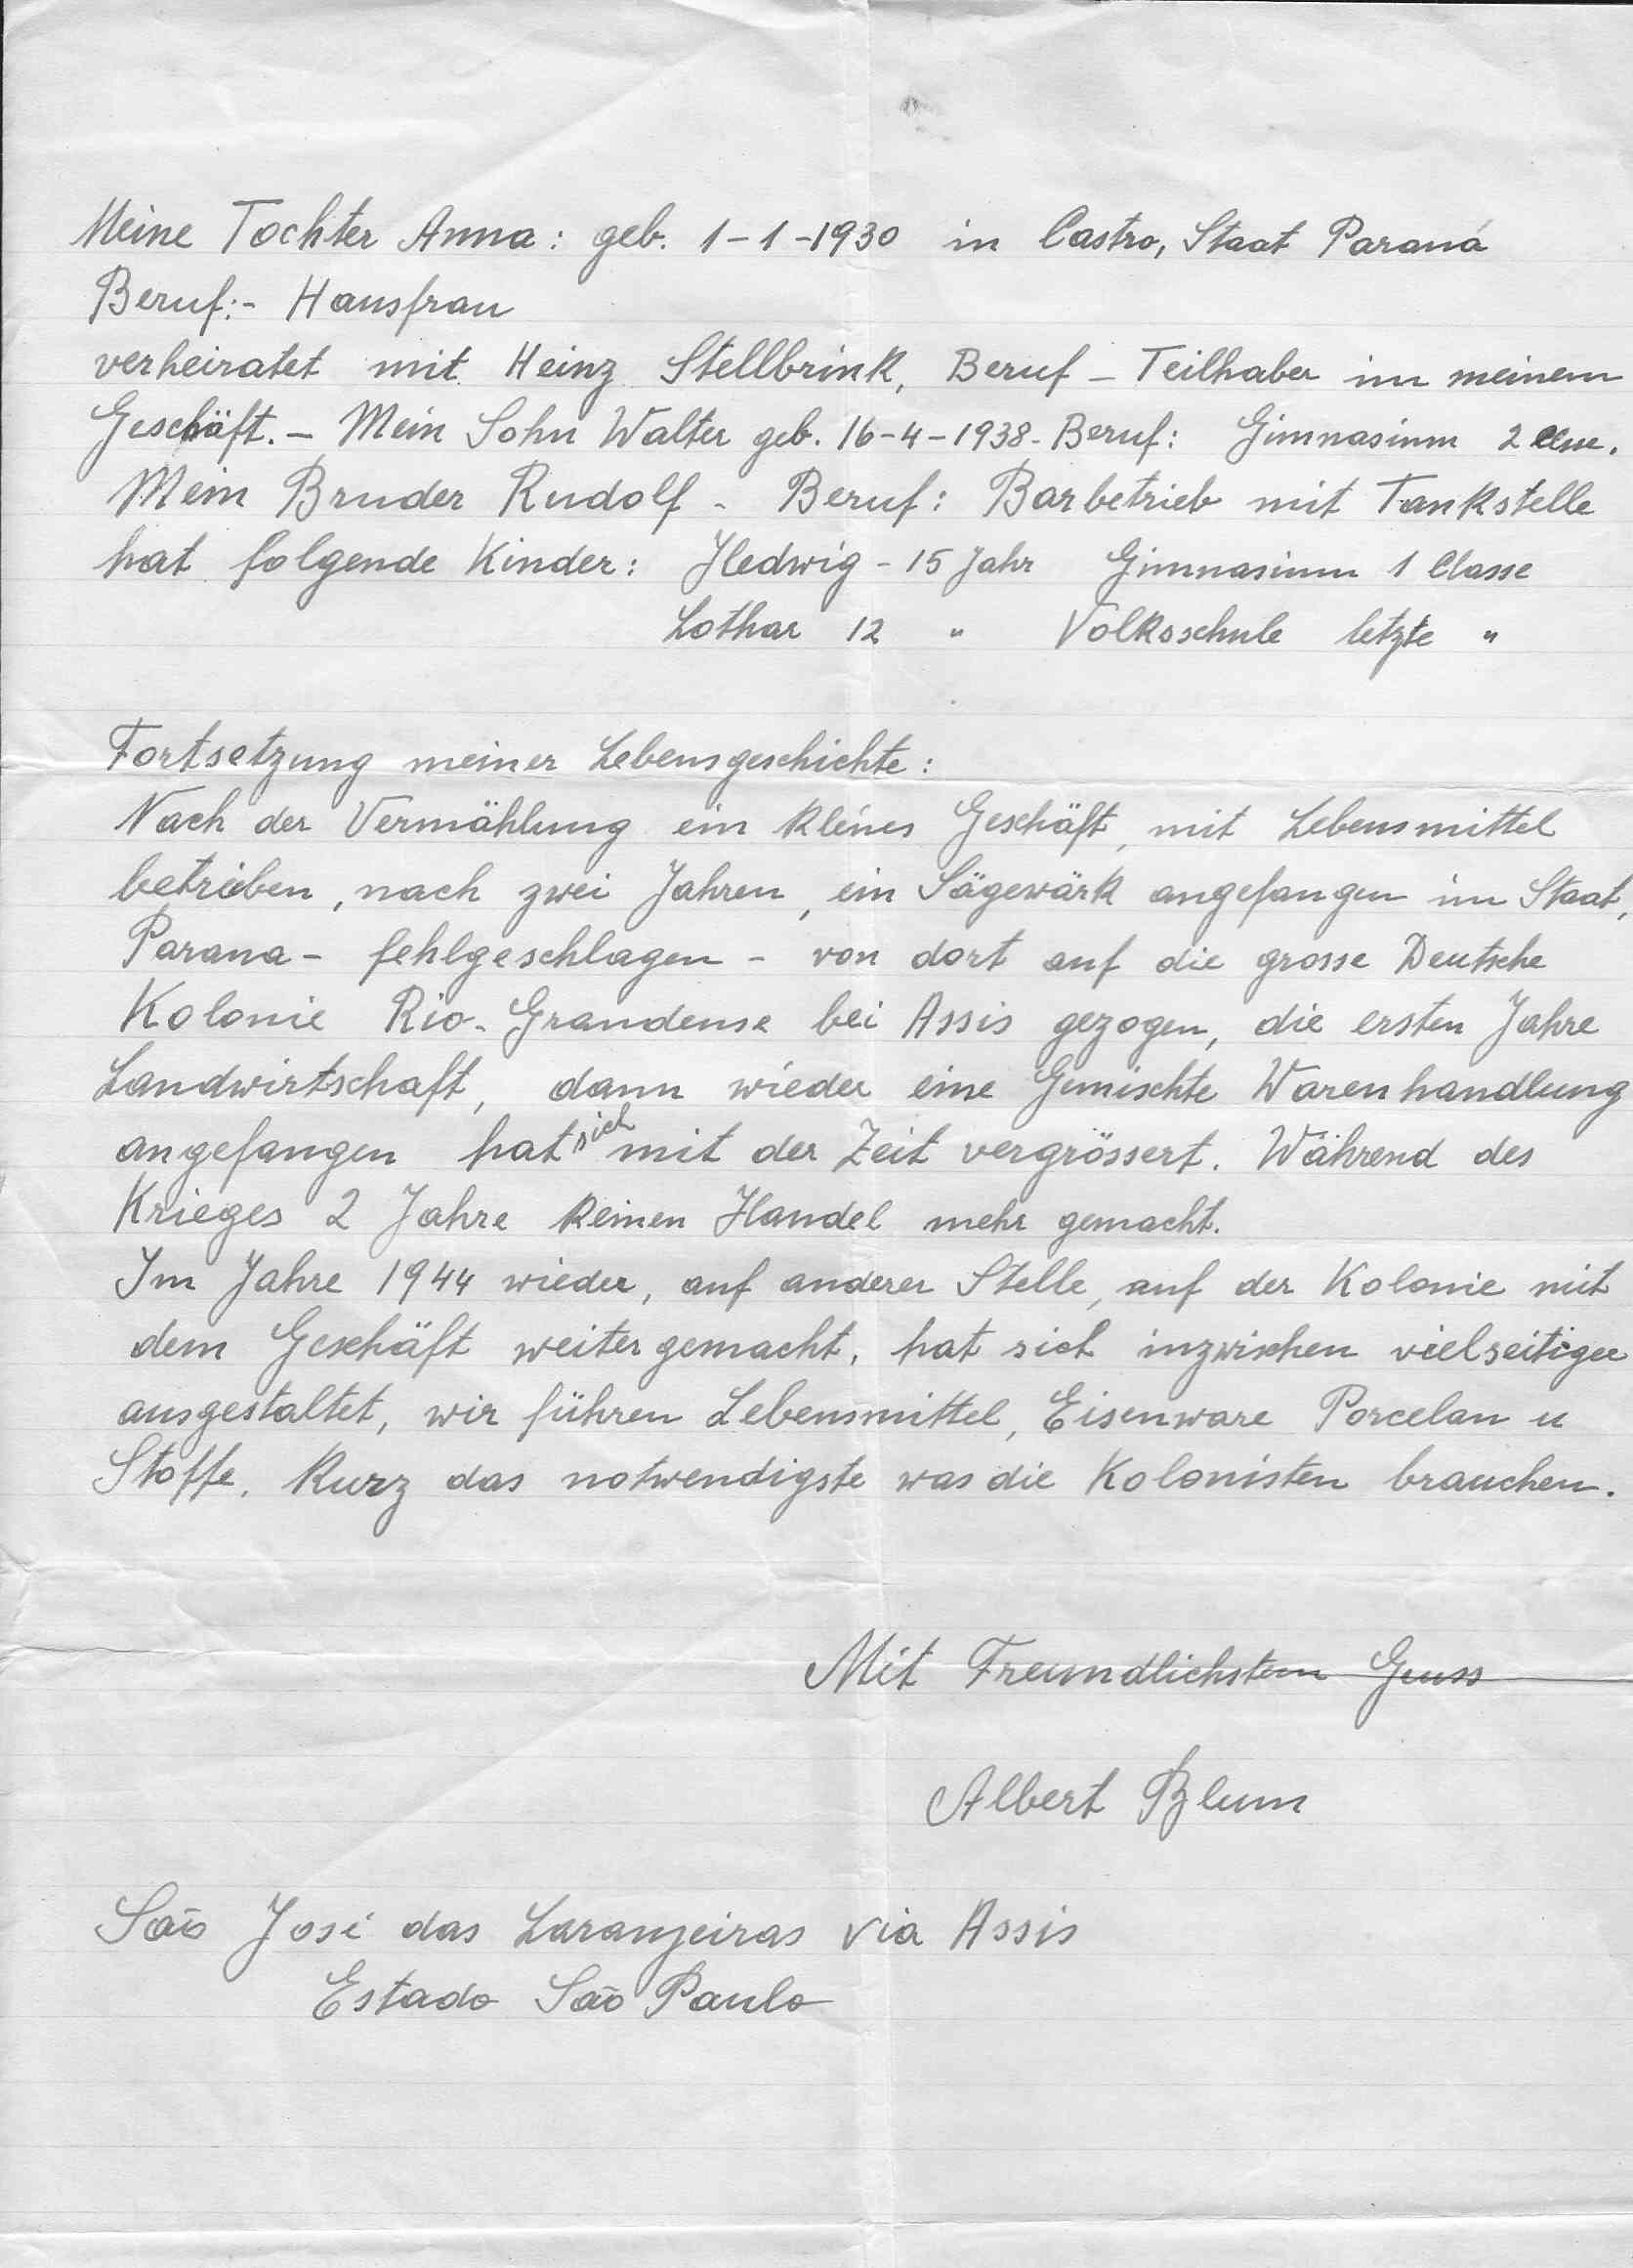 Meine Tochter Anna: geb. 1-1-1930 in Castro, Staat Paraná
Beruf:- Hausfrau
verheiratet mit Heinz Stellbrink, Beruf - Teilhaber im meinem
Geschäft. - Mein Sohn Walter geb. 16-4-1938 - Beruf: Gimnasium 2
Mein Bruder Rudolf - Beruf: Barbetrieb mit Tankstelle
hat folgende Kinder: Hedwig - 15 Jahr Gimnasium 1 Classe
Lothar 12 " Volksschule letzte "
Fortsetzung meiner Lebensgeschichte:
Nach der Vermählung ein kleines Geschäft, mit Lebensmittel
betrieben, nach zwei Jahren, ein Sägewärk angefangen im Staat,
Parana - fehlgeschlagen - von dort auf die grosse Deutsche
Kolonie Rio-Grandense bei Assis gezogen, die ersten Jahre
Landwirtschaft, dann wieder eine Gemischte Warenhandlung
angefangen hat sich mit der Zeit vergrössert. Während des
Krieges 2 Jahre keinen Handel mehr gemacht.
Im Jahre 1944 wieder, auf anderer Stelle, auf der Kolonie mit
dem Geschäft weiter gemacht, hat sich inzwischen vielseitiger
ausgestaltet, wir führen Lebensmittel, Eisenware Porcelan u
Stoffe. Kurz das notwendigste was die Kolonisten brauchen.
Mit Freundlichstem Gruss
Albert Blum
São José das Laranjeiras via Assis
Estado São Paulo